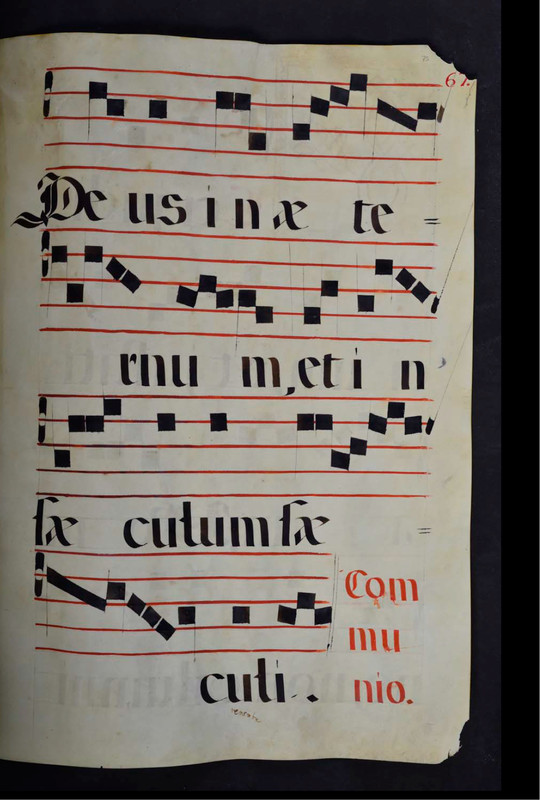 67.
De us i n æ te =
rnu m, et i n
sæ culum sæ =
culi..
Com
mu
nio.